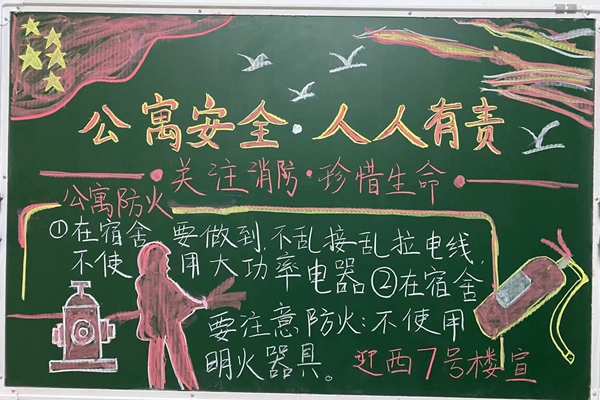 公寓安全·人人有责
关注消防·珍惜生命
公寓防火
①在宿舍 要做到,不乱接乱拉电线,
不使用大功率电器②在宿舍
要注意防火:不使用
明火器具。迎西7号楼宣